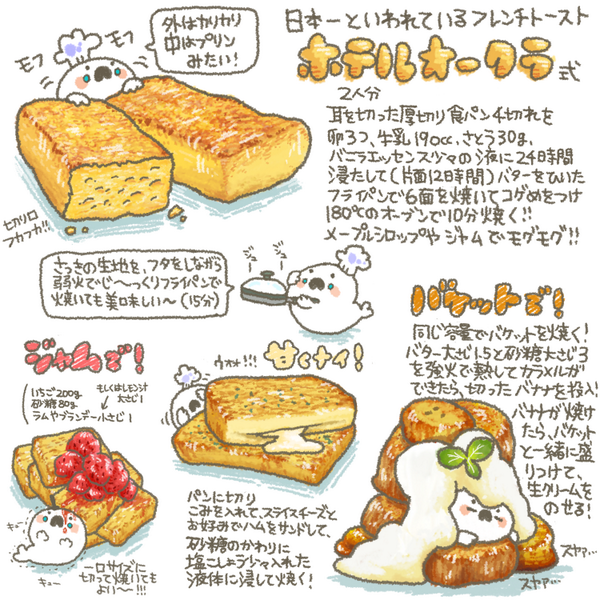 日本一といわれているフレンチトースト
ホテルオークラ式
モフ
モフ
外はカリカリ
中はプリン
みたい!
切り口
フカフカ!!
2人分
耳を切った厚切り食パン4切れを
卵3つ、牛乳190cc、さとう30g、
バニラエッセンス少々の液に24時間
浸たして(片面12時間)バターをひいた
フライパンで6面を焼いてコゲめをつけ
180℃のオーブンで10分焼く!!
メープルシロップやジャムでモグモグ!!
さっきの生地を、フタをしながら
弱火でじ〜っくりフライパンで
焼いても美味しい〜(15分)
ジュー
ジュー
ジャムで!
いちご200g
砂糖80g
ラムやブランデー小さじ1
もしくはレモン汁
大さじ1
キュー
キュー
一口サイズに
切って焼いても
よい〜!!!
ウオォ!!!
甘くナイ!
パンに切り
こみを入れて、スライスチーズと
お好みでハムをサンドして、
砂糖のかわりに
塩こしょう入れた
液体に浸して焼く!
バケットで!
同じ容量でバケットを焼く!
バター大さじ1.5と砂糖大さじ3
を強火で熱してカラメルが
できたら、切ったバナナを投入!
バナナが焼け
たら、バケット
と一緒に盛
りつけて、
生クリームを
のせる!
スヤァ…
スヤァ…